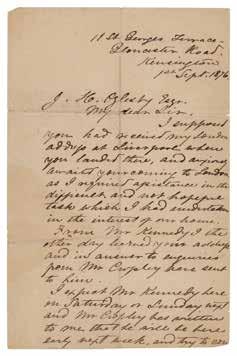 11 St. Georges Terrace
Gloucester Road.
Kensington
1st Sept. 1876
J. H. Oglesby Esqr.
My dear Sir.
I supposed
you had received my London
address at Liverpool where
you landed there, and anxiously
awaited your coming to London
as I required assistance in the
difficult and not hopeful
task which I had undertaken
in the interest of our home.
From Mr Kennedy I the
other day learned your address
and in answer to enquiries
from Mr have sent
to him.
I expect Mr Kennedy here
on Saturday or Sunday next
and Mr has written
to me that he will be here
early next week, and try to